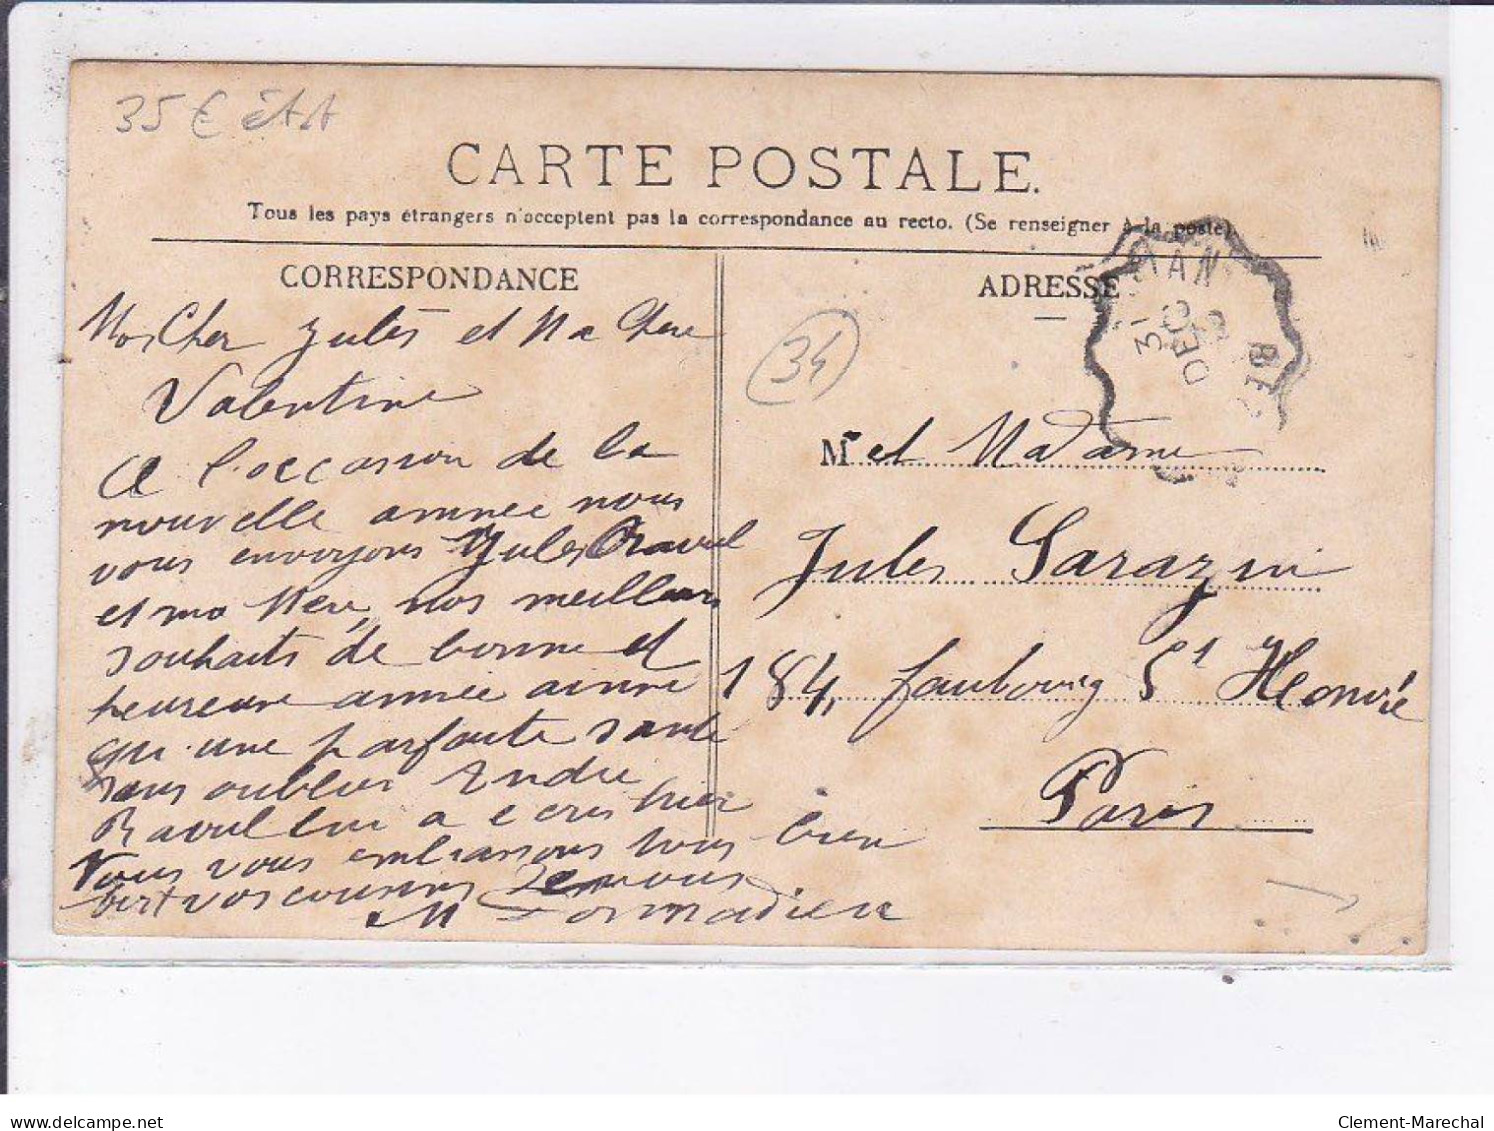 35 € état
CARTE POSTALE.
Tous les pays étrangers n'acceptent pas la correspondance au recto. (Se renseigner à la poste).
CORRESPONDANCE
Mon Cher Jules et Ma Chere
Valentine
A l'occasion de la
nouvelle annee nous
vous envoyons Jules Raoul
et ma Mere, nos meilleurs
souhaits de bonne et
heureuse année ainsi
qu'une parfaite santé
sans oublier André
Raoul lui a ecris hier
Nous vous embrassons tous bien
fort vos cousins
M Dormadieu
ADRESSE
34
31
DEC
BE
Mr et Madame
Jules Sarazin
184, faubourg St Honoré
Paris
delcampe.net
Clement-Marechal